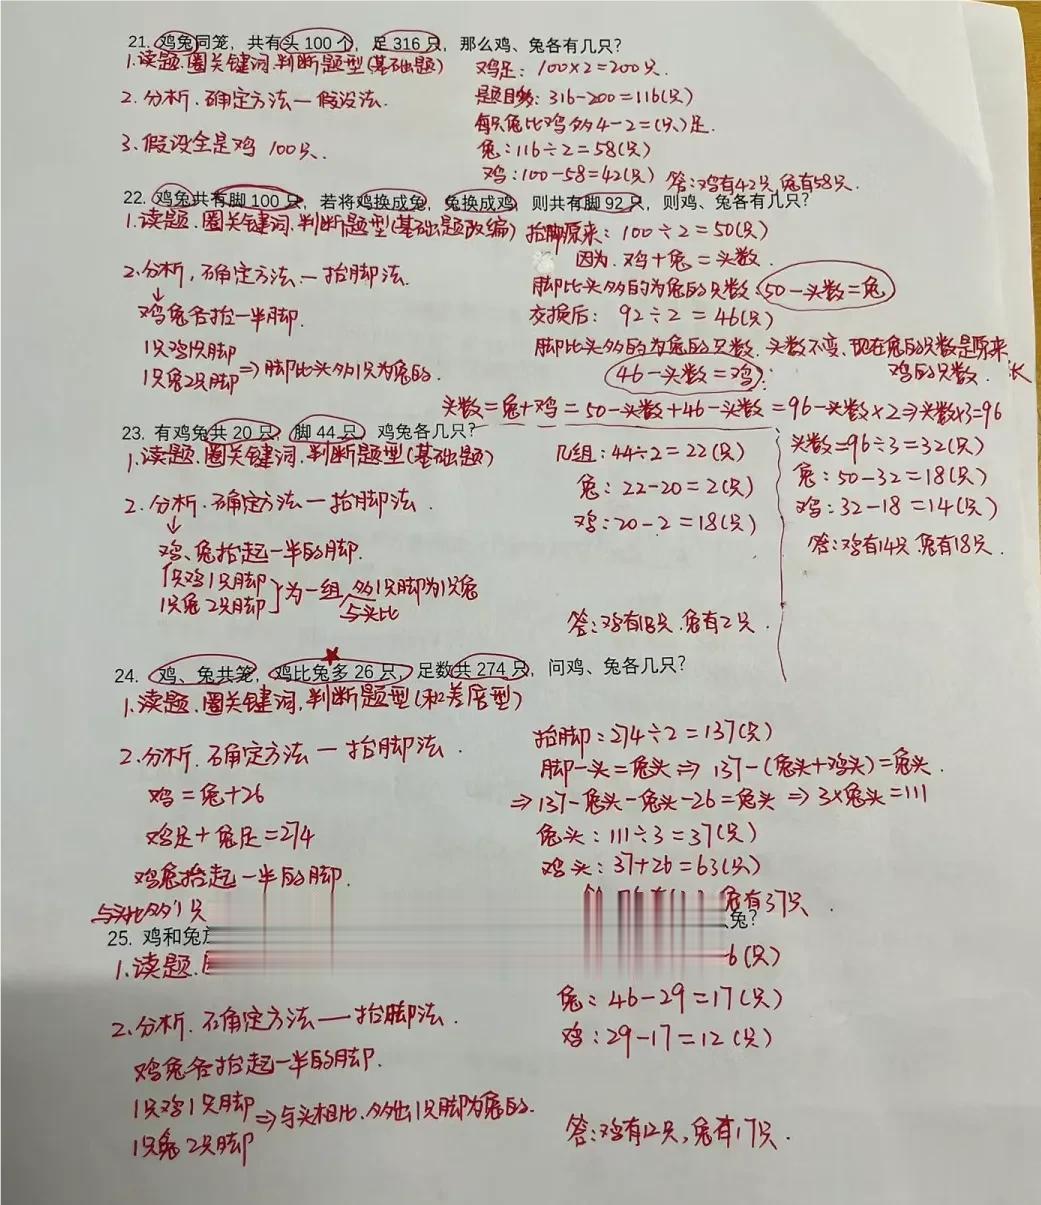 21. 鸡兔同笼，共有头 100 个，足 316 只，那么鸡、兔各有几只？
1.读题.圈关键词.判断题型(基础题)
2. 分析.确定方法—假设法.
3.假设全是鸡 100只.
鸡足：100×2=200只.
是题目多：316-200=116(只)
每只兔比鸡多4-2=(只)足.
兔：116÷2=58(只)
鸡：100-58=42(只) 答：鸡有42只,兔有58只.
22. 鸡兔共有脚 100 只，若将鸡换成兔，兔换成鸡，则共有脚 92 只，则鸡、兔各有几只？
1.读题.圈关键词.判断题型(基础题改编)
2.分析,确定方法.—抬脚法.
↓
鸡兔各抬一半脚.
1只鸡1只脚
1只兔2只脚 ⇒脚比头多1只为兔的.
抬脚原来：100÷2=50(只)
因为.鸡+兔=头数.
脚比头多的为兔的只数.50-头数=兔
交换后：92÷2=46(只)
脚比头多的为兔的只数.头数不变.现在兔的只数是原来
鸡的只数.
46-头数=鸡
头数=兔+鸡=50-头数+46-头数=96-头数×2⇒头数×3=96
头数=96÷3=32(只)
兔：50-32=18(只)
鸡：32-18=14(只)
答：鸡有14只.兔有18只.
23. 有鸡兔共 20 只，脚 44 只，鸡兔各几只？
1.读题.圈关键词.判断题型(基础题)
2.分析.确定方法—抬脚法.
↓
鸡、兔抬起一半的脚.
1只鸡1只脚
1只兔2只脚 }为一组.多1只脚为1只兔
与头比
几组：44÷2=22(只)
兔：22-20=2(只)
鸡：20-2=18(只)
答：鸡有18只.兔有2只.
24. 鸡、兔共笼，鸡比兔多 26 只，足数共 274 只，问鸡、兔各几只？
1.读题.圈关键词.判断题型(和差倍型)
2.分析.确定方法—抬脚法.
鸡=兔+26
鸡足+兔足=274
鸡兔抬起一半的脚.
与头比多1只
抬脚：274÷2=137(只)
脚-头=兔头⇒137-(兔头+鸡头)=兔头.
⇒137-兔头-兔头-26=兔头⇒3×兔头=111
兔头：111÷3=37(只)
鸡头：37+26=63(只)
兔有37只.
25. 鸡和兔
兔？
1.读题.
6(只)
2.分析.确定方法—抬脚法.
鸡兔各抬起一半的脚.
1只鸡1只脚
1只兔2只脚 ⇒与头相比.多出1只脚为兔的.
兔：46-29=17(只)
鸡：29-17=12(只)
答：鸡有12只,兔有17只.